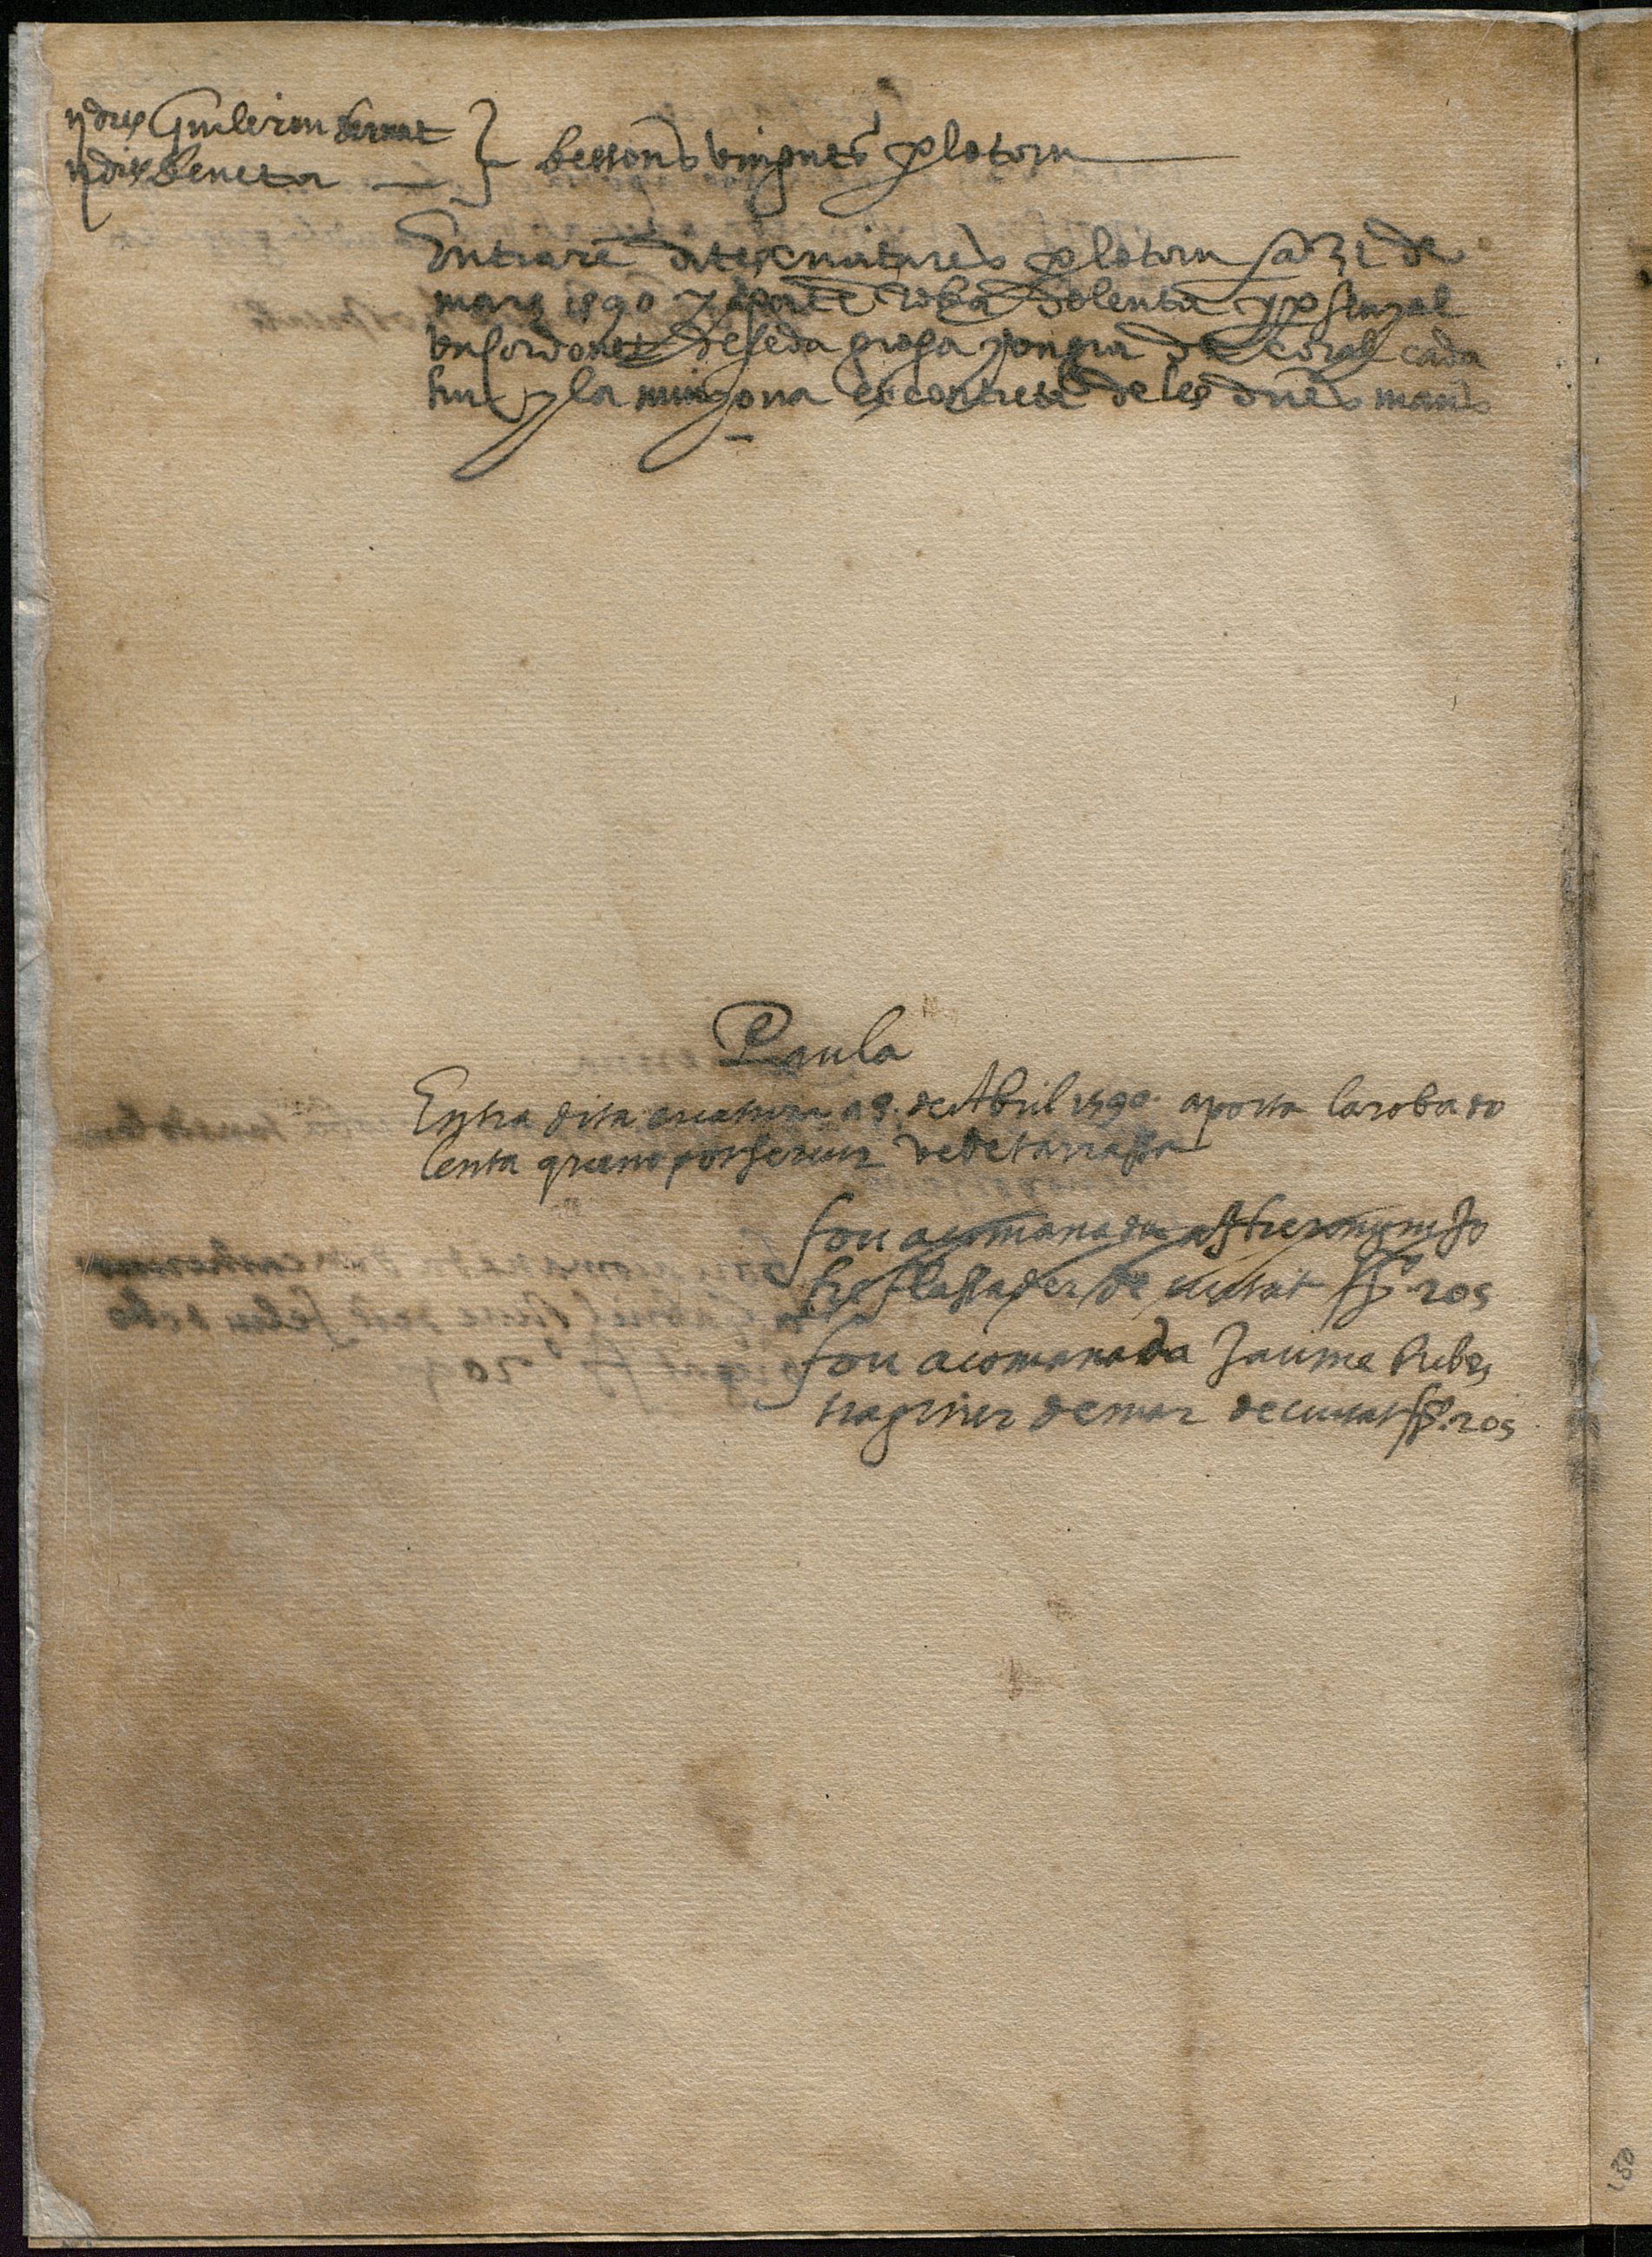 ydris Guileron Bernat
ydris Beneta } bessons vinguts p lo torn
Entrare dites criatures p lo torn a 31 de
mars 1590 y aporte roba dolenta y p senyal
un cordonet de seda groga y ongra de coral cada
hu y la minyona es contreta de les dues mans
Paula
Entra dita criatura a 8. de Abril 1590. aporta la roba do
lenta que no pot servir ve de tarrassa
fou acomanada a Hieronym Jo
flassader de ciutat fo 205
fou acomanada Jaume Ribes
traginer de mar de ciutat fo. 205
130